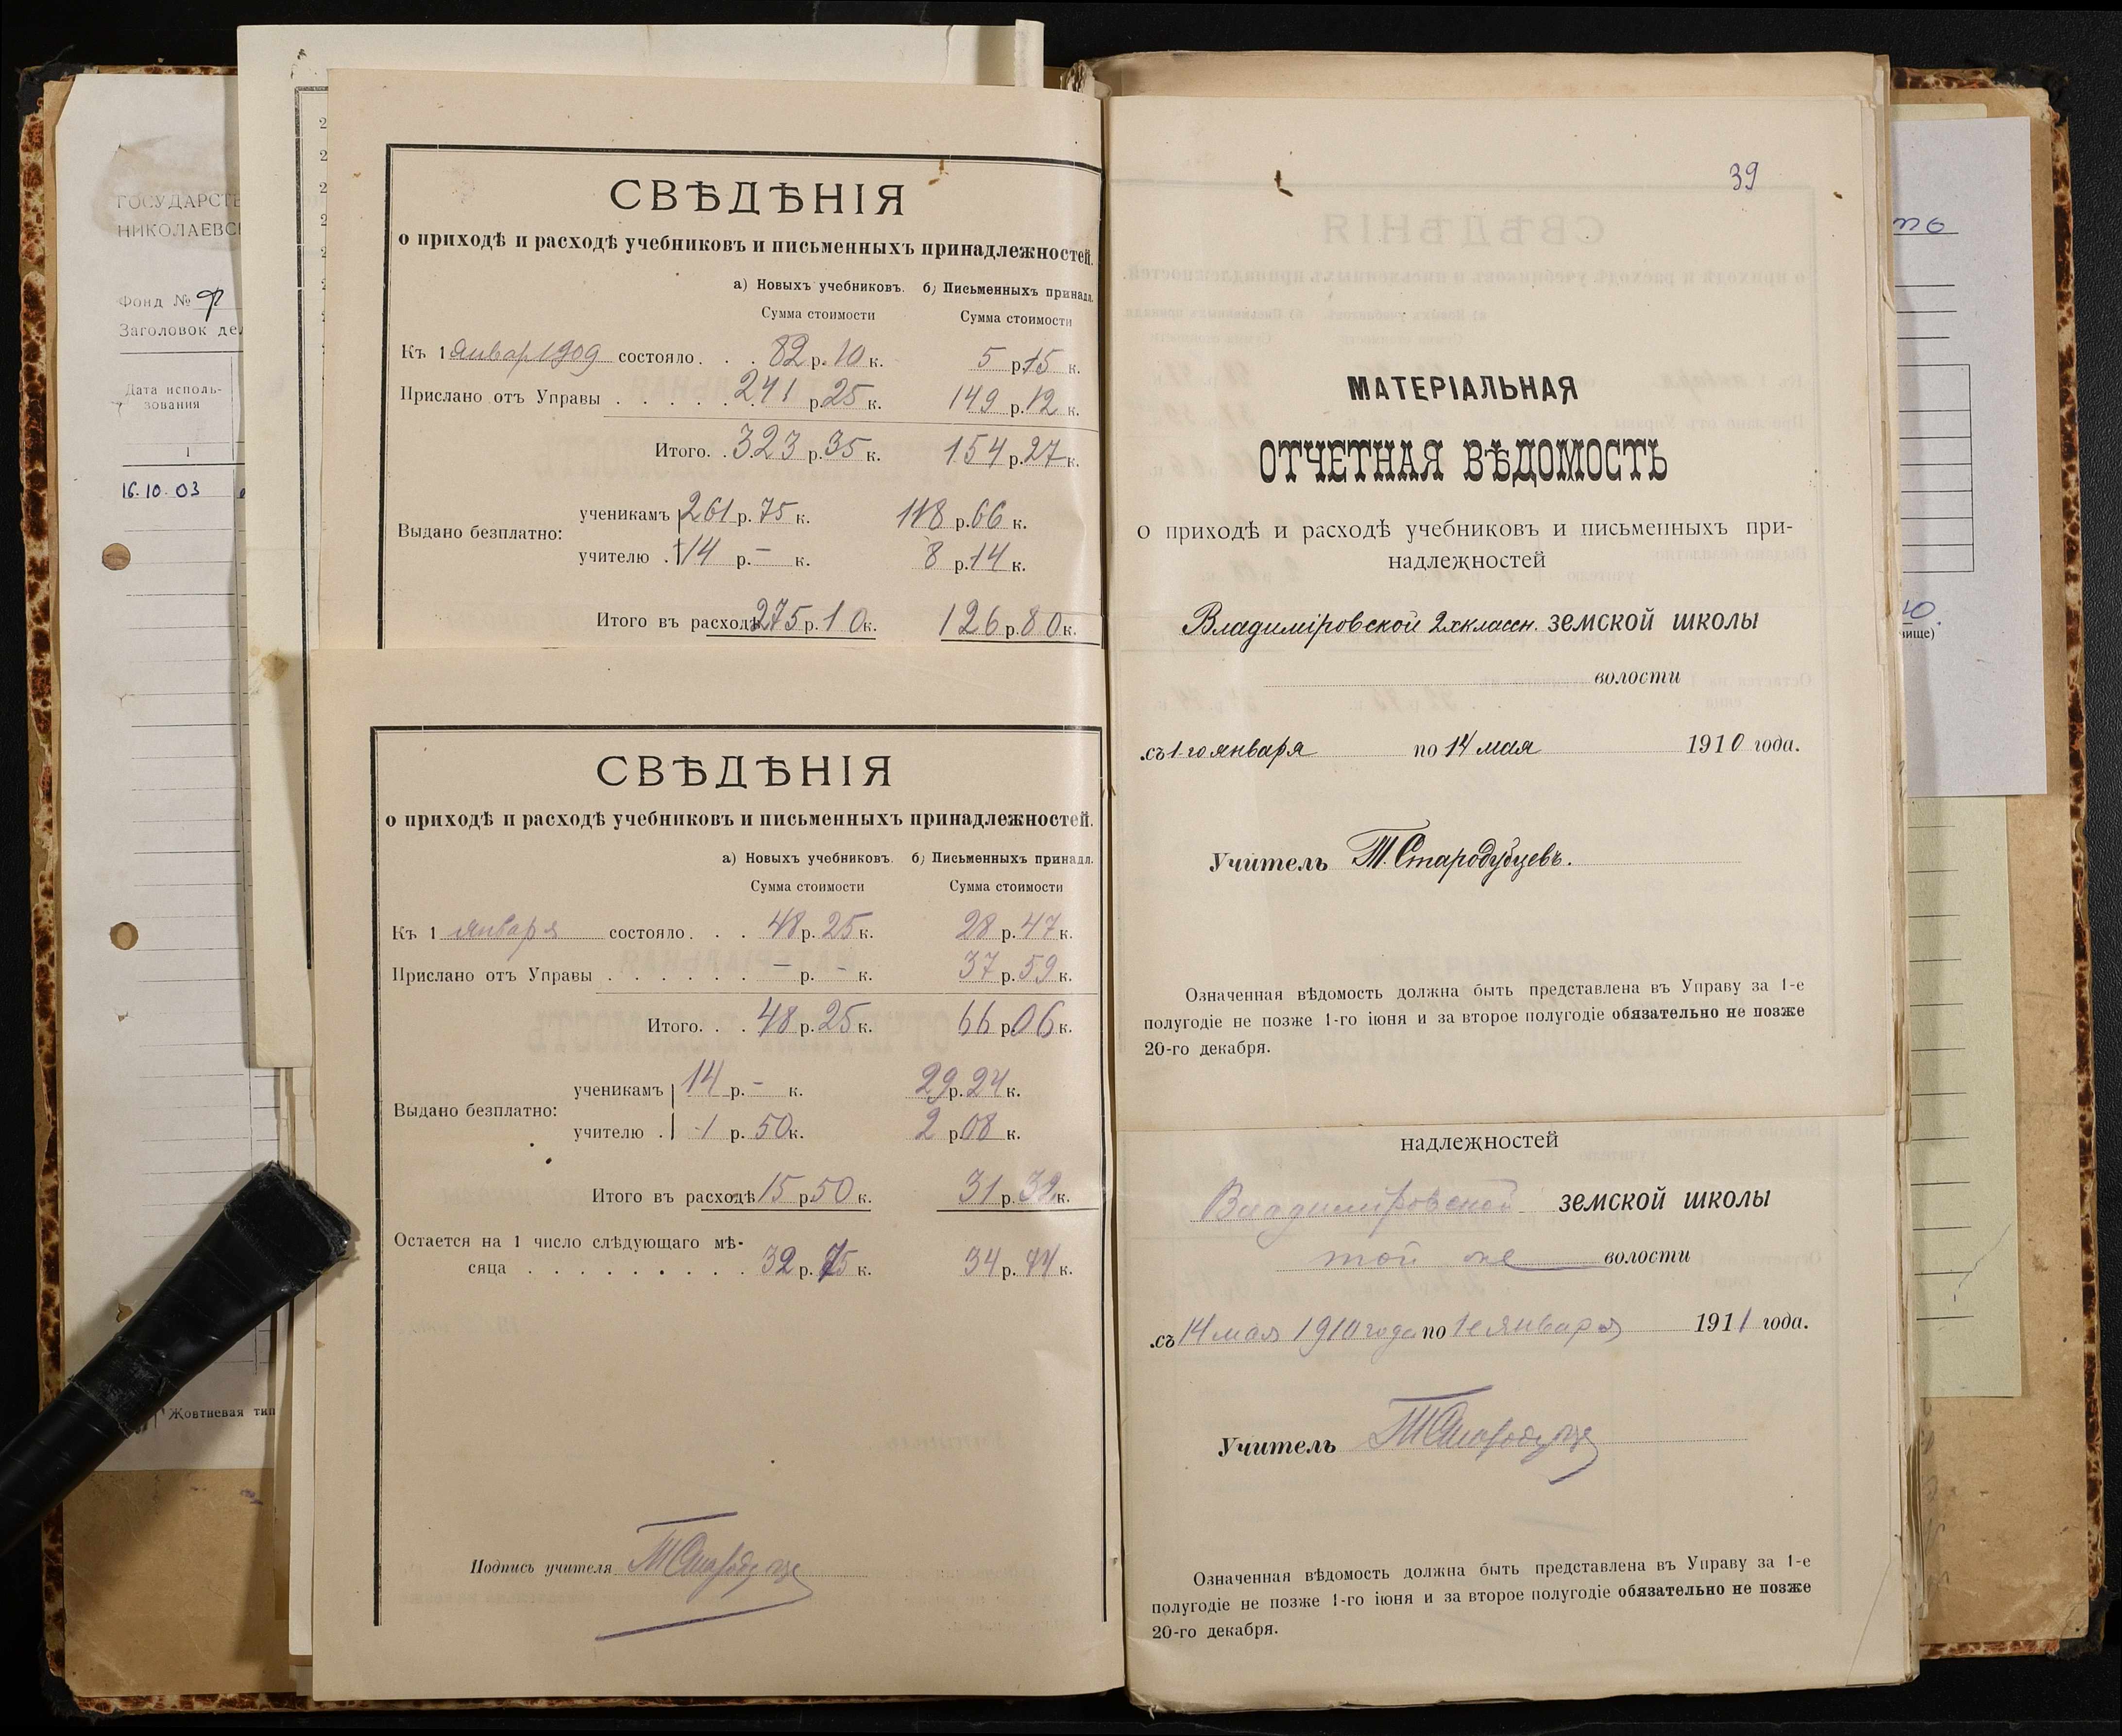 ГОСУДАРСТВ
НИКОЛАЕВС
Фонд №
Заголовок де
Дата исполь-
зования
1
16.10.03
Жовтневая тип
СВѢДѢНІЯ
о приходѣ и расходѣ учебниковъ и письменныхъ принадлежностей.
а) Новыхъ учебниковъ. б) Письменныхъ принадл.
Сумма стоимости Сумма стоимости
Къ 1 Январ 1909 состояло. . . 82 р. 10 к. 5 р. 15 к.
Прислано отъ Управы . . . . . . 241 р. 25 к. 149 р. 12 к.
Итого. . 323 р. 35 к. 154 р. 27 к.
Выдано безплатно:
ученикамъ 261 р. 75 к. 118 р. 66 к.
учителю . 14 р. — к. 8 р. 14 к.
Итого въ расходѣ 275 р. 10 к. 126 р. 80 к.
СВѢДѢНІЯ
о приходѣ и расходѣ учебниковъ и письменныхъ принадлежностей.
а) Новыхъ учебниковъ. б) Письменныхъ принадл.
Сумма стоимости Сумма стоимости
Къ 1 января состояло. . . 48 р. 25 к. 28 р. 47 к.
Прислано отъ Управы . . . . . . — р. - к. 37 р. 59 к.
Итого. . . 48 р. 25 к. 66 р. 06 к.
Выдано безплатно:
ученикамъ 14 р. — к. 29 р. 24 к.
учителю . 1 р. 50 к. 2 р. 08 к.
Итого въ расходѣ 15 р. 50 к. 31 р. 32 к.
Остается на 1 число слѣдующаго мѣ-
сяца . . . . . . . . . 32 р. 75 к. 34 р. 74 к.
Подпись учителя
39
МАТЕРІАЛЬНАЯ
ОТЧЕТНАЯ ВѢДОМОСТЬ
о приходѣ и расходѣ учебниковъ и письменныхъ при-
надлежностей
Владиміровской 2хклассн. земской школы
волости
съ 1-го января по 14 мая 1910 года.
Учитель Т. Стародубцевъ.
Означенная вѣдомость должна быть представлена въ Управу за 1-е
полугодіе не позже 1-го іюня и за второе полугодіе обязательно не позже
20-го декабря.
надлежностей
Владиміровской земской школы
той же волости
съ 14 мая 1910 года по 1е января 1911 года.
Учитель
Означенная вѣдомость должна быть представлена въ Управу за 1-е
полугодіе не позже 1-го іюня и за второе полугодіе обязательно не позже
20-го декабря.
ище)